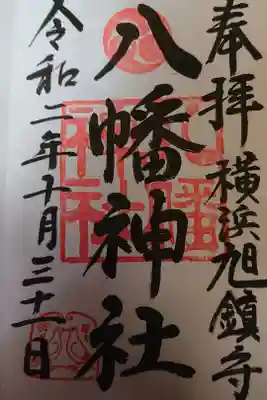 奉拝 横浜旭鎮守
八幡神社
令和二年十月三十一日
八幡神社